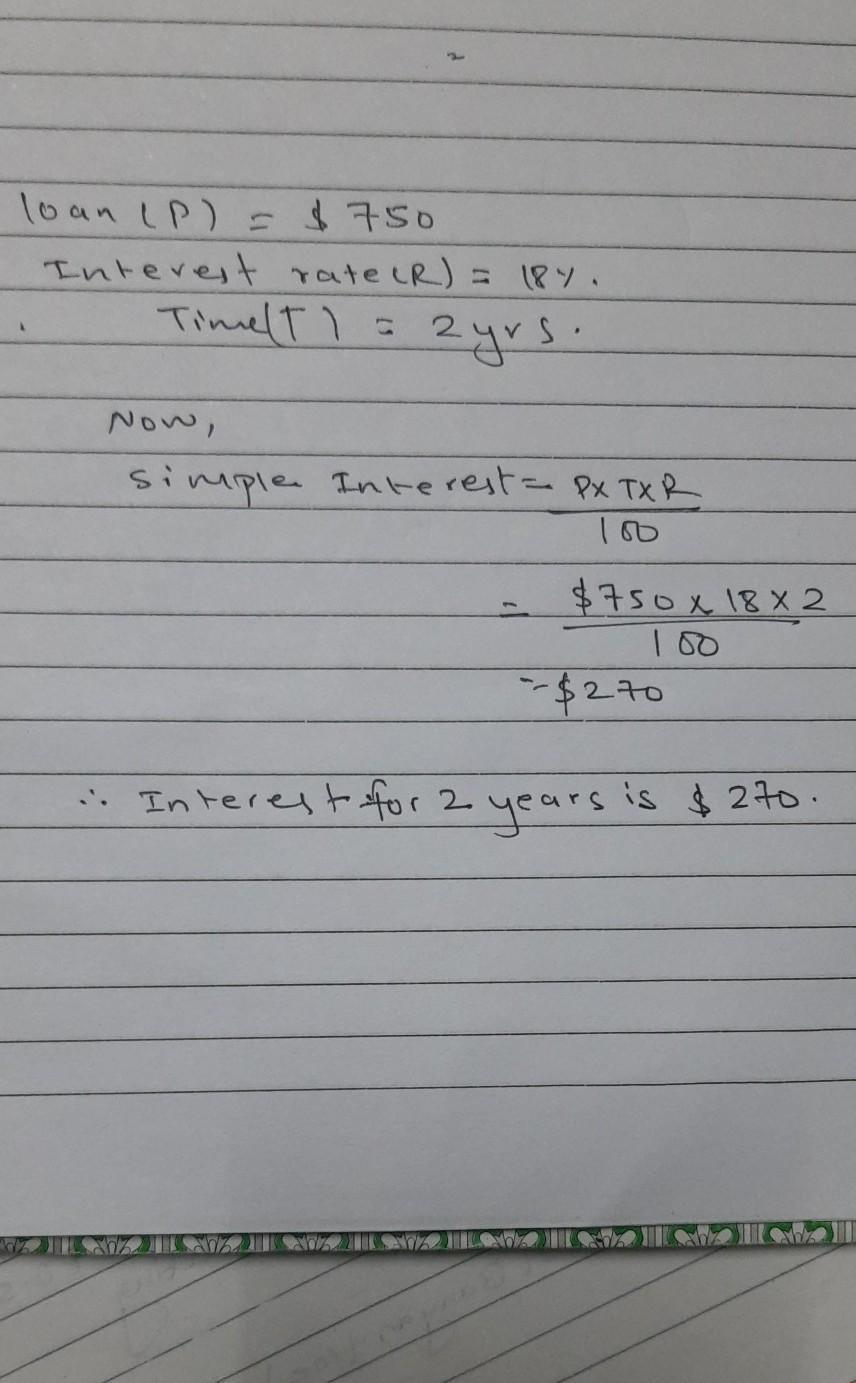 2
loan (P) = $ 750
Interest rate (R) = 18%.
Time(T) = 2 yrs.
Now,
Simple Interest = P x T x R
100
= $750 x 18 x 2
100
= $270
∴ Interest for 2 years is $ 270.